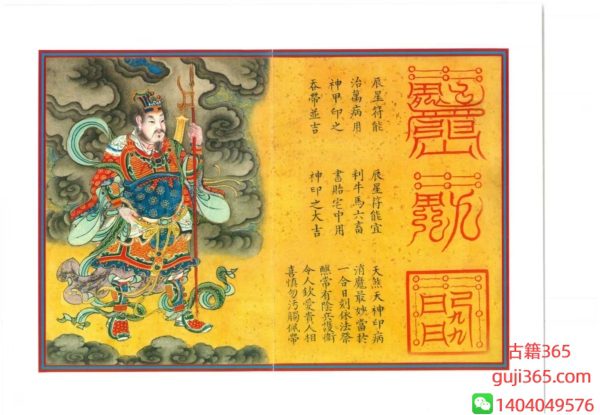 辰星符能
治萬病用
神甲印之
吞帶並吉
辰星符能宜
利牛馬六畜
書貼宅中用
神印之大吉
天煞天神印病
消魔最妙當於
一合日刻依法祭
醮常有陰兵護衛
令人欽愛貴人相
喜慎勿汚觸佩帶
古籍365
guji365.com
1404049576